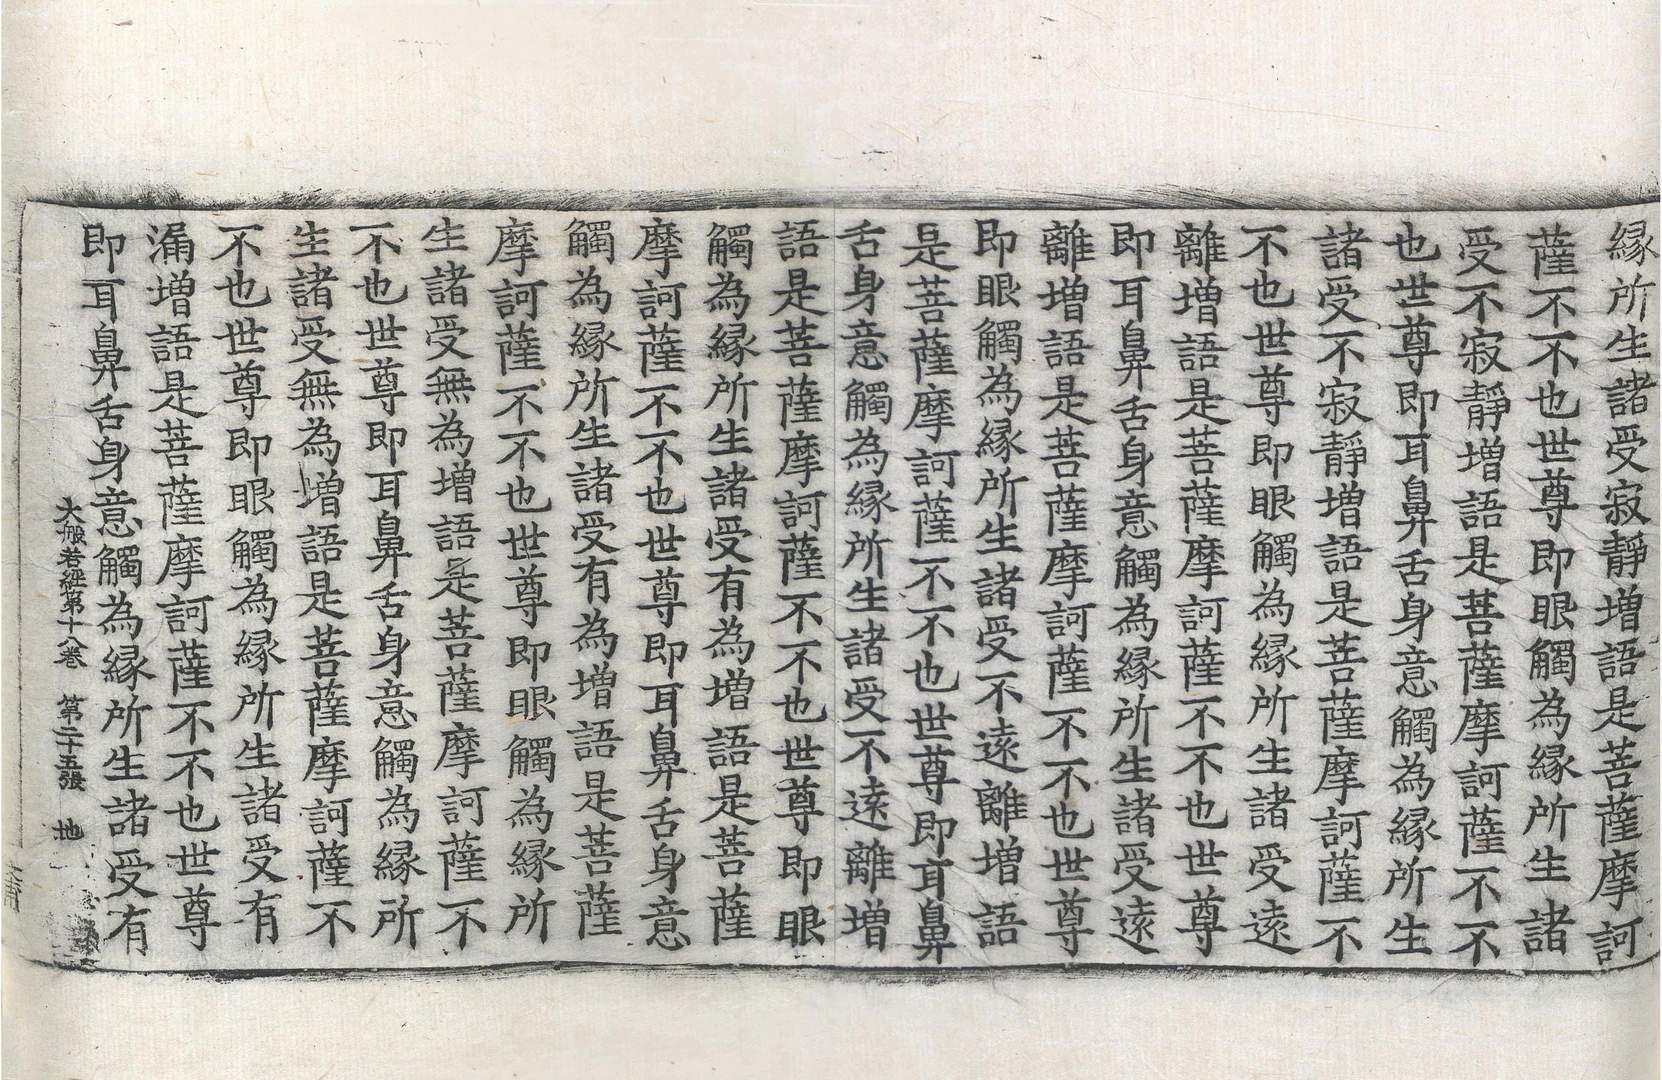 緣所生諸受寂靜增語是菩薩摩訶
薩不不也世尊即眼觸為緣所生諸
受不寂靜增語是菩薩摩訶薩不不
也世尊即耳鼻舌身意觸為緣所生
諸受不寂靜增語是菩薩摩訶薩不
不也世尊即眼觸為緣所生諸受遠
離增語是菩薩摩訶薩不不也世尊
即耳鼻舌身意觸為緣所生諸受遠
離增語是菩薩摩訶薩不不也世尊
即眼觸為緣所生諸受不遠離增語
是菩薩摩訶薩不不也世尊即耳鼻
舌身意觸為緣所生諸受不遠離增
語是菩薩摩訶薩不不也世尊即眼
觸為緣所生諸受有為增語是菩薩
摩訶薩不不也世尊即耳鼻舌身意
觸為緣所生諸受有為增語是菩薩
摩訶薩不不也世尊即眼觸為緣所
生諸受無為增語是菩薩摩訶薩不
不也世尊即耳鼻舌身意觸為緣所
生諸受無為增語是菩薩摩訶薩不
不也世尊即眼觸為緣所生諸受有
漏增語是菩薩摩訶薩不不也世尊
即耳鼻舌身意觸為緣所生諸受有
大般若經第十八卷 第二十五張 地